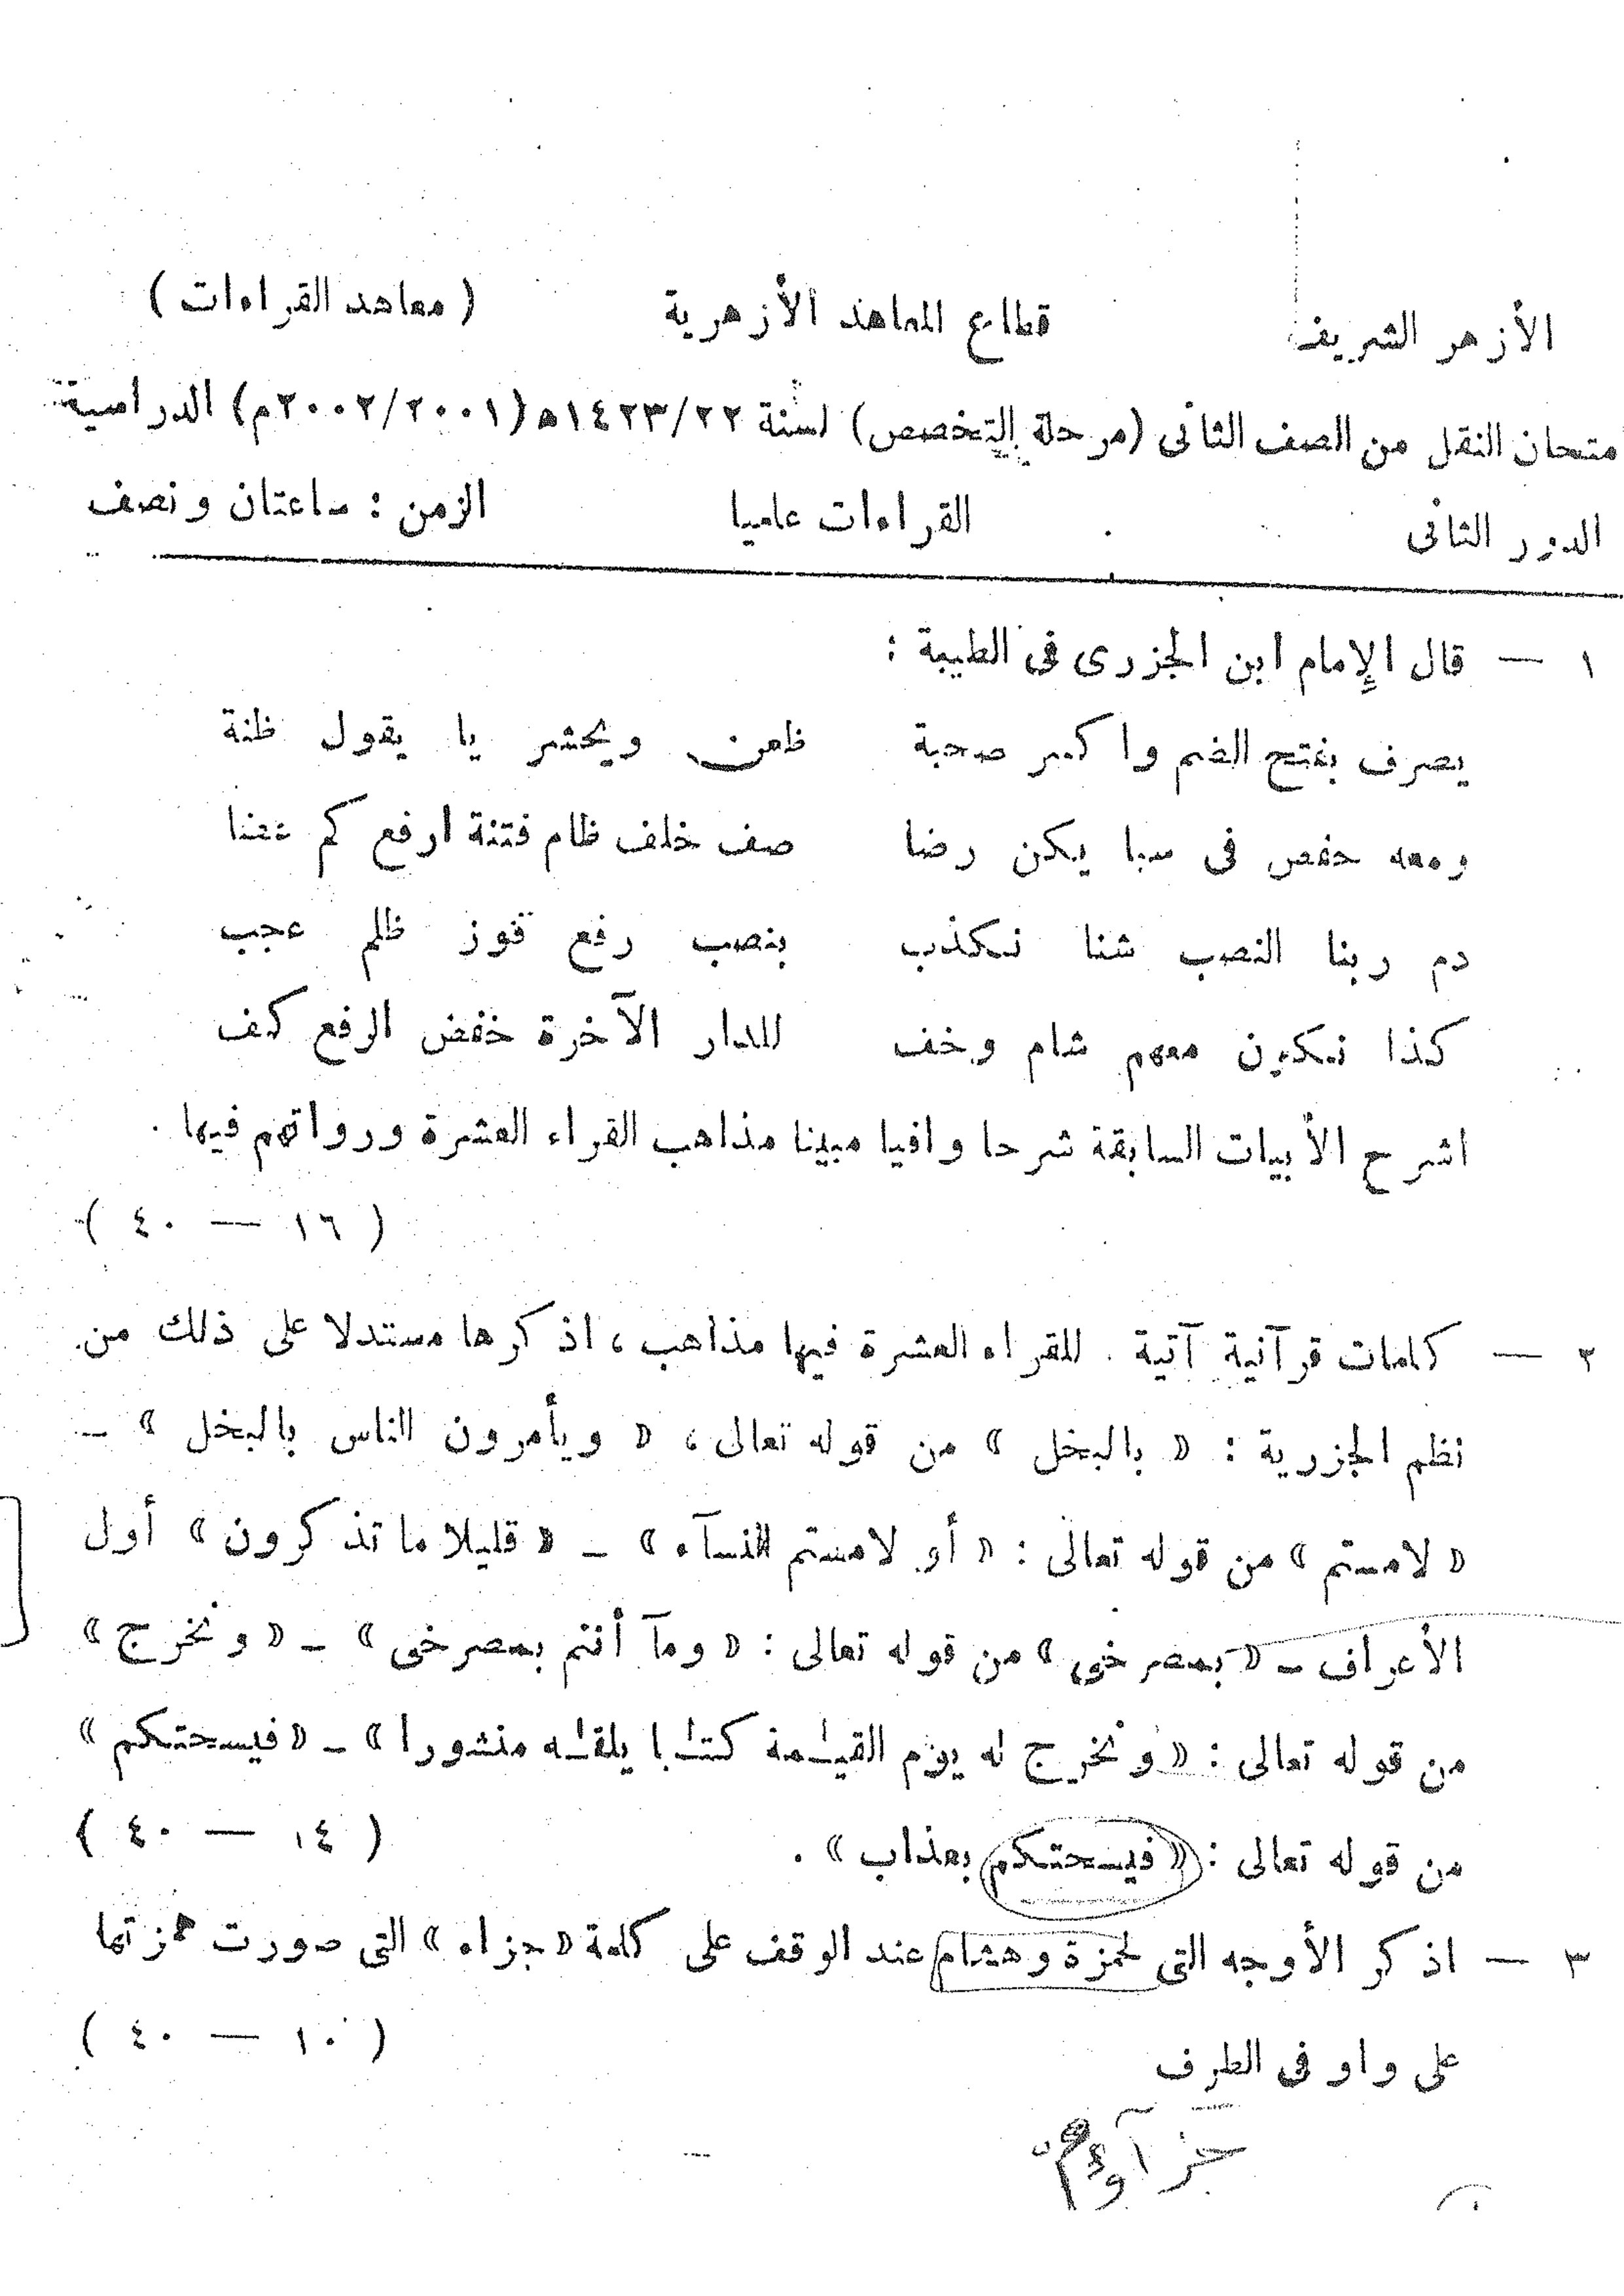 الأزهر الشريف قطاع المعاهد الأزهرية ( معاهد القراءات )
متحان النقل من الصف الثانى (مرحلة التخصص) لسنة ١٤٢٣/٢٢ه (٢٠٠٢/٢٠٠١م) الدراسية
الدور الثانى القراءات علميا الزمن : ساعتان ونصف
١ — قال الإمام ابن الجزرى فى الطيبة :
يصرف بفتح الضم واكسر صحبة ظعن ويحشر يا يقول ظنة
ومعه حفص فى سبا يكن رضا صف خلف ظام فتنة ارفع كم عضا
دم ربنا النصب شفا نكذب بنصب رفع فوز ظلم عجب
كذا نكون معهم شام وخف للدار الآخرة خفض الرفع كف
اشرح الأبيات السابقة شرحا وافيا مبينا مذاهب القراء العشرة ورواتهم فيها .
( ١٦ — ٤٠ )
٢ — كلمات قرآنية آتية . للقراء العشرة فيها مذاهب ، اذكرها مستدلا على ذلك من
نظم الجزرية : « بالبخل » من قوله تعالى ، « ويأمرون الناس بالبخل » –
« لامستم » من قوله تعالى : « أو لامستم النسآء » – « قليلا ما تذكرون » أول
الأعراف – « بمصرخى » من قوله تعالى : « ومآ أنتم بمصرخى » – « ونخرج »
من قوله تعالى : « ونخرج له يوم القيـٰمة كتـٰبا يلقـٰه منشورا » – « فيسحتكم »
من قوله تعالى : « فيسحتكم بعذاب » .
( ١٤ — ٤٠ )
٣ — اذكر الأوجه التى لحمزة وهشام عند الوقف على كلمة « جزاء » التى صورت همزتها
على واو فى الطرف
( ١٠ — ٤٠ )